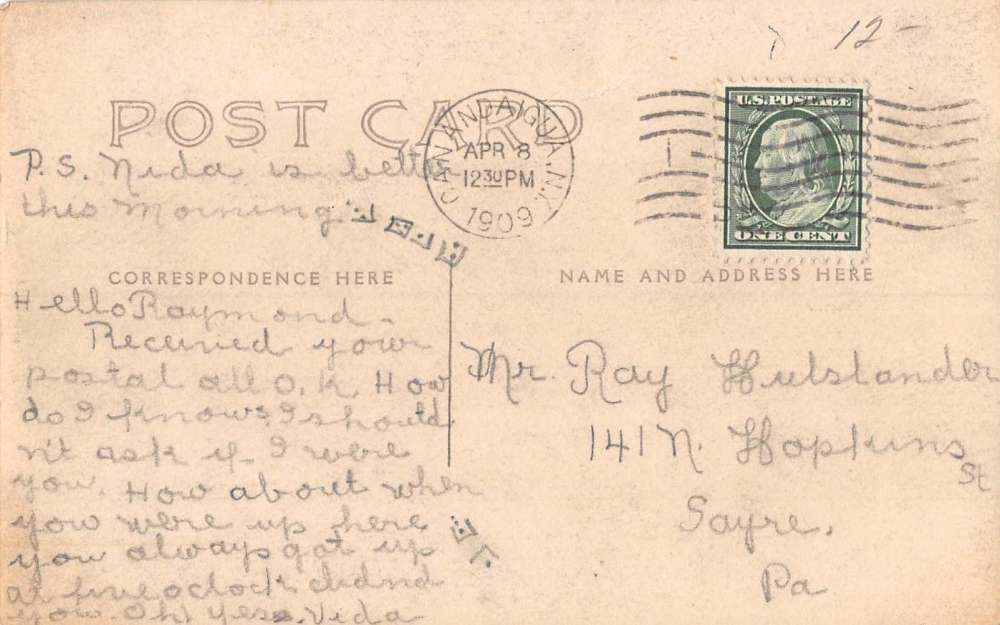 12-
POST CARD
CANANDAIGUA, N.Y.
APR 8
12 30 PM
1909
U.S. POSTAGE
ONE CENT
P.S. Nida is better
this morning.
CORRESPONDENCE HERE
NAME AND ADDRESS HERE
Hello Raymond-
Received your
postal all O.K. How
do I know, I should
n't ask if I were
you. How about when
you were up here
you always got up
at five oclock didnd
you. Oh! yes. Vida
Mr. Ray Hulslander
141 N. Hopkins
St
Sayre.
Pa